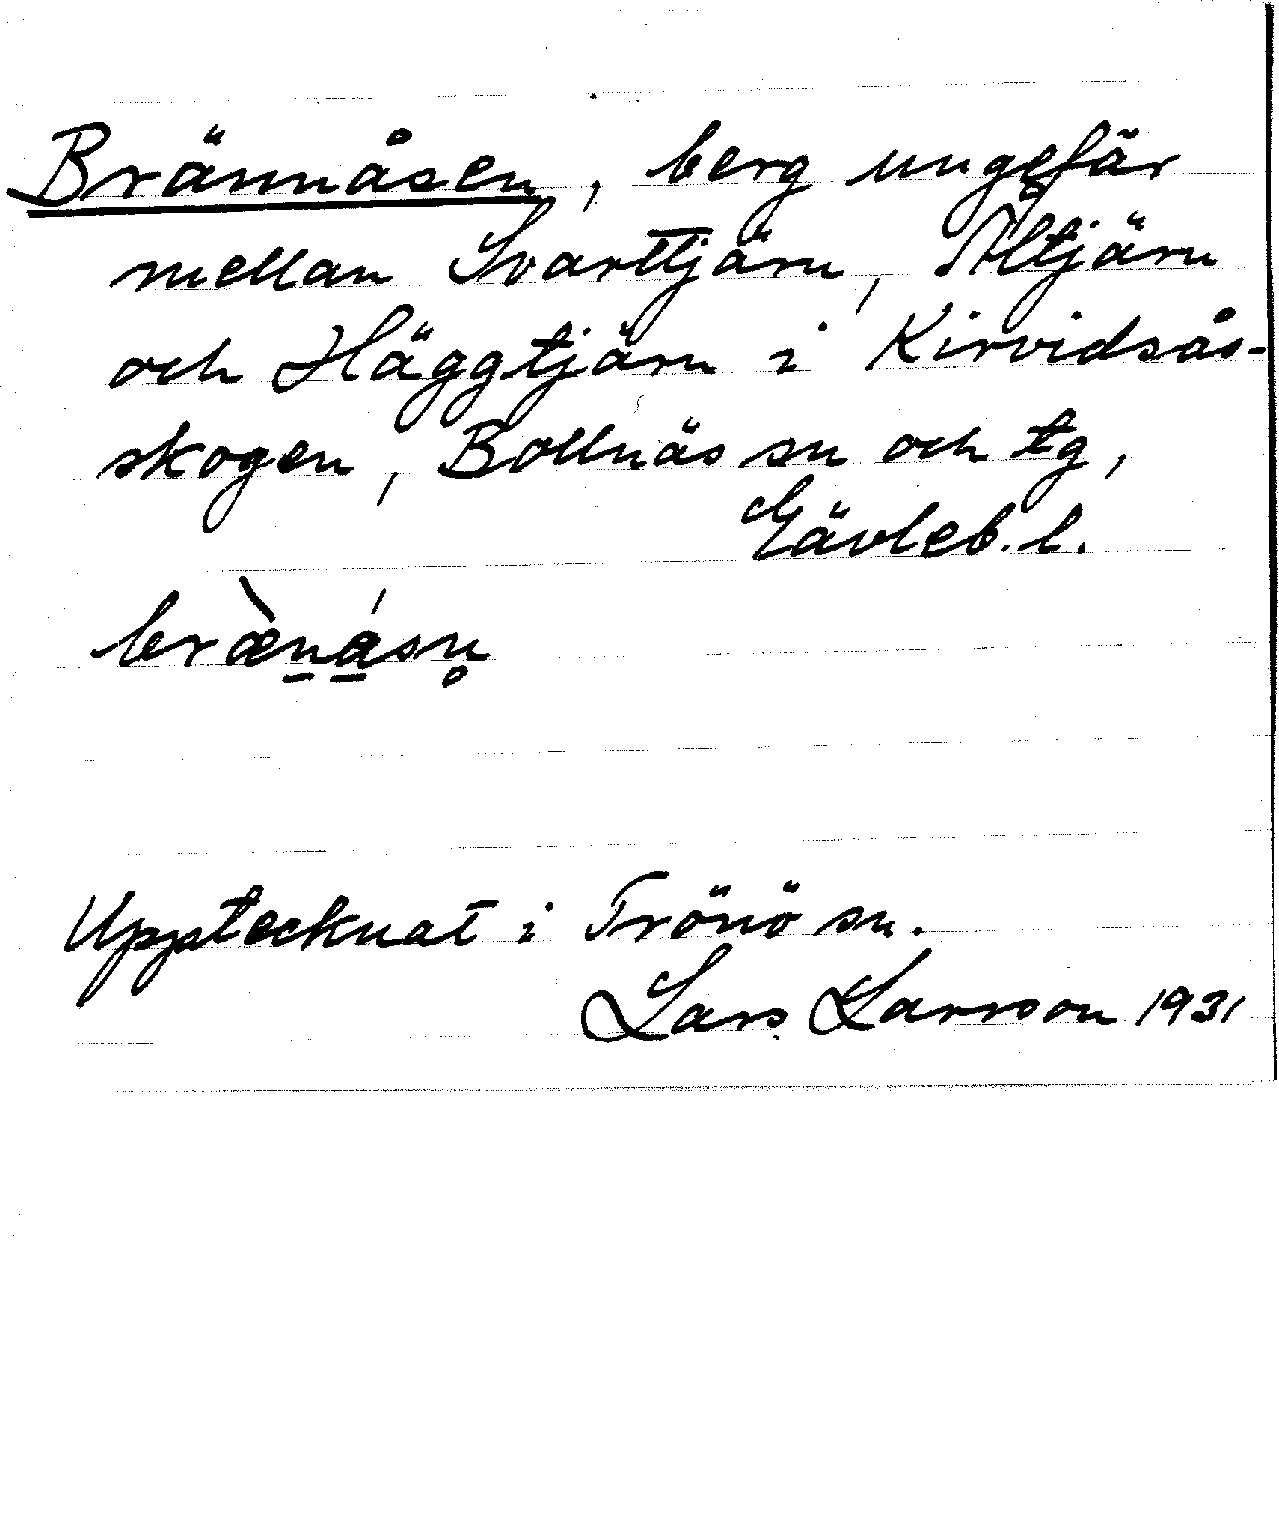 Brännåsen, berg ungefär
mellan Svarttjärn, Åltjärn
och Häggtjärn i Kirvidsås-
skogen, Bollnäs sn och tg,
Gävleb. l.
bræ̀ṉá̱sn̥
Upptecknat i Trönö sn.
Lars Larsson 1931